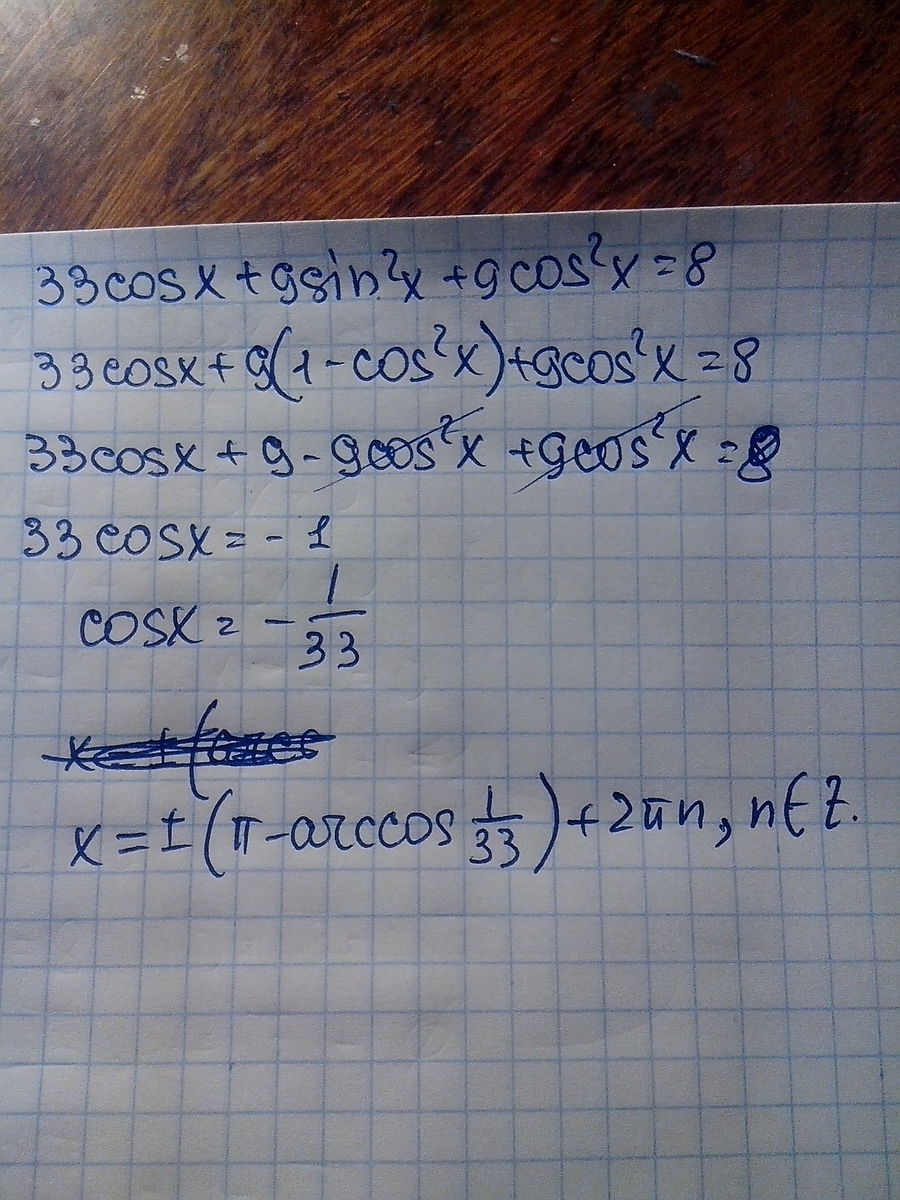 33cosx + 9sin²x + 9cos²x = 8
33cosx + 9(1 - cos²x) + 9cos²x = 8
33cosx + 9 - 9cos²x + 9cos²x = 8
33cosx = - 1
cosx = - 1/33
x = ± (π - arccos 1/33) + 2πn, n ∈ Z.